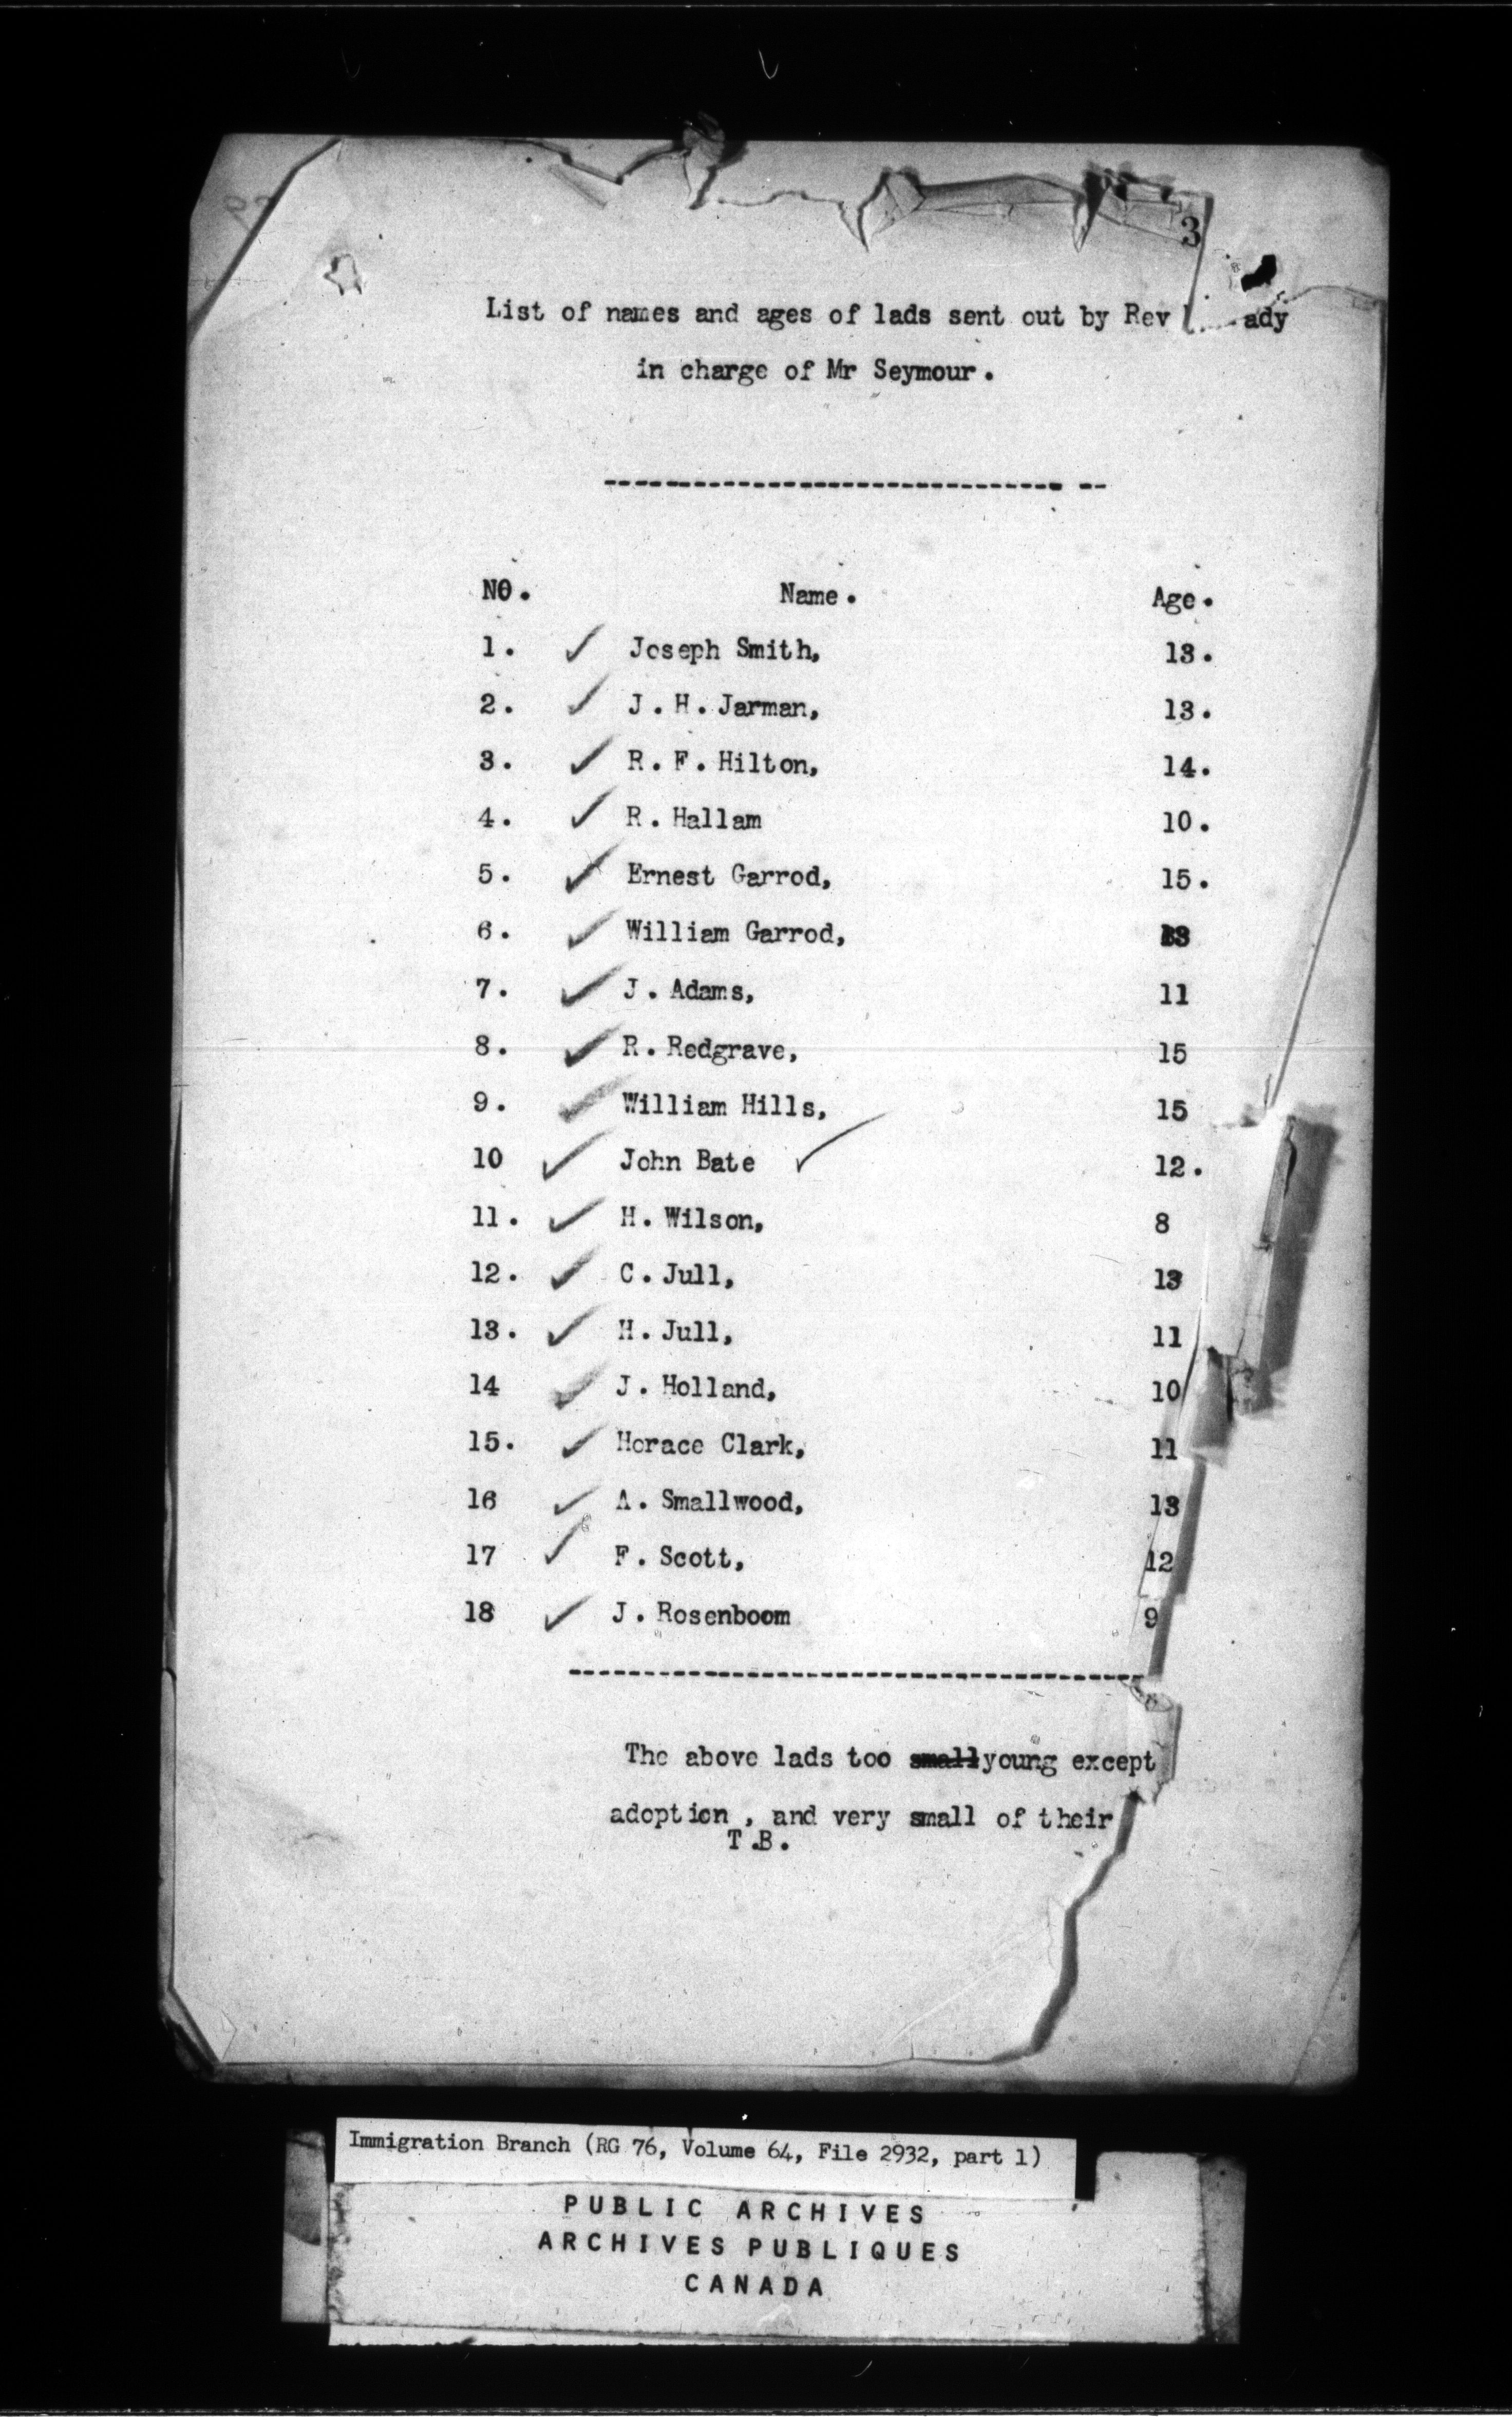 3
List of names and ages of lads sent out by Rev ady
in charge of Mr Seymour.
NO. Name. Age.
1. ✓ Joseph Smith, 13.
2. ✓ J. H. Jarman, 13.
3. ✓ R. F. Hilton, 14.
4. ✓ R. Hallam 10.
5. ✓ Ernest Garrod, 15.
6. ✓ William Garrod, 13
7. ✓ J. Adams, 11
8. ✓ R. Redgrave, 15
9. ✓ William Hills, 15
10 ✓ John Bate ✓ 12.
11. ✓ H. Wilson, 8
12. ✓ C. Jull, 13
13. ✓ H. Jull, 11
14 ✓ J. Holland, 10
15. ✓ Horace Clark, 11
16 ✓ A. Smallwood, 13
17 ✓ F. Scott, 12
18 ✓ J. Rosenboom 9
The above lads too small young except
adoption, and very small of their
T.B.
Immigration Branch (RG 76, Volume 64, File 2932, part 1)
PUBLIC ARCHIVES
ARCHIVES PUBLIQUES
CANADA